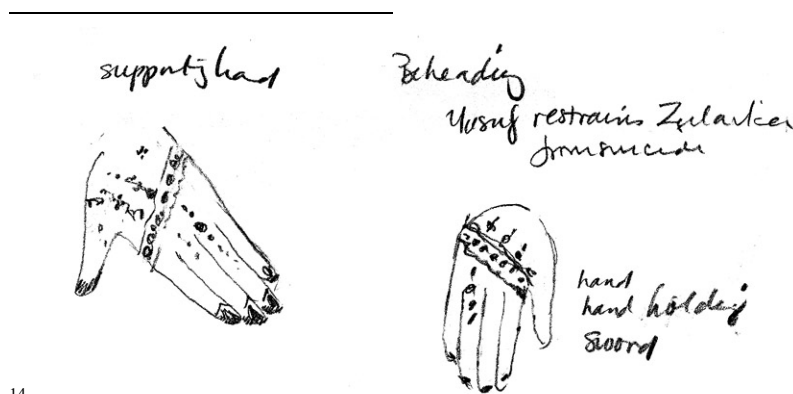 supporting hand
Beheading
Yusuf restrains Zulaikea
from suicide
hand
hand holding
sword
14